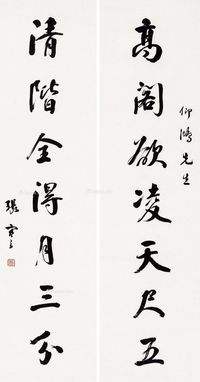 高阁欲凌天尺五
仰鸿先生
清階全得月三分
張